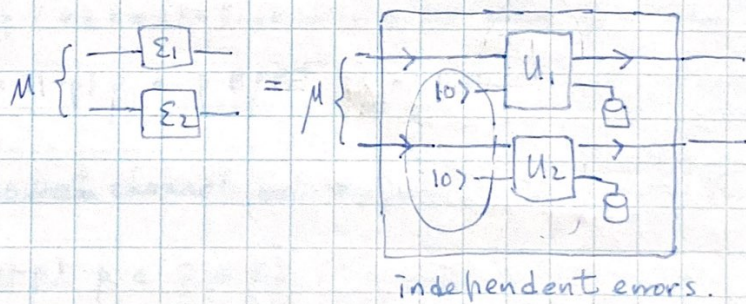 μ { ε1 = μ { |0⟩ U1
ε2 |0⟩ U2
independent errors.